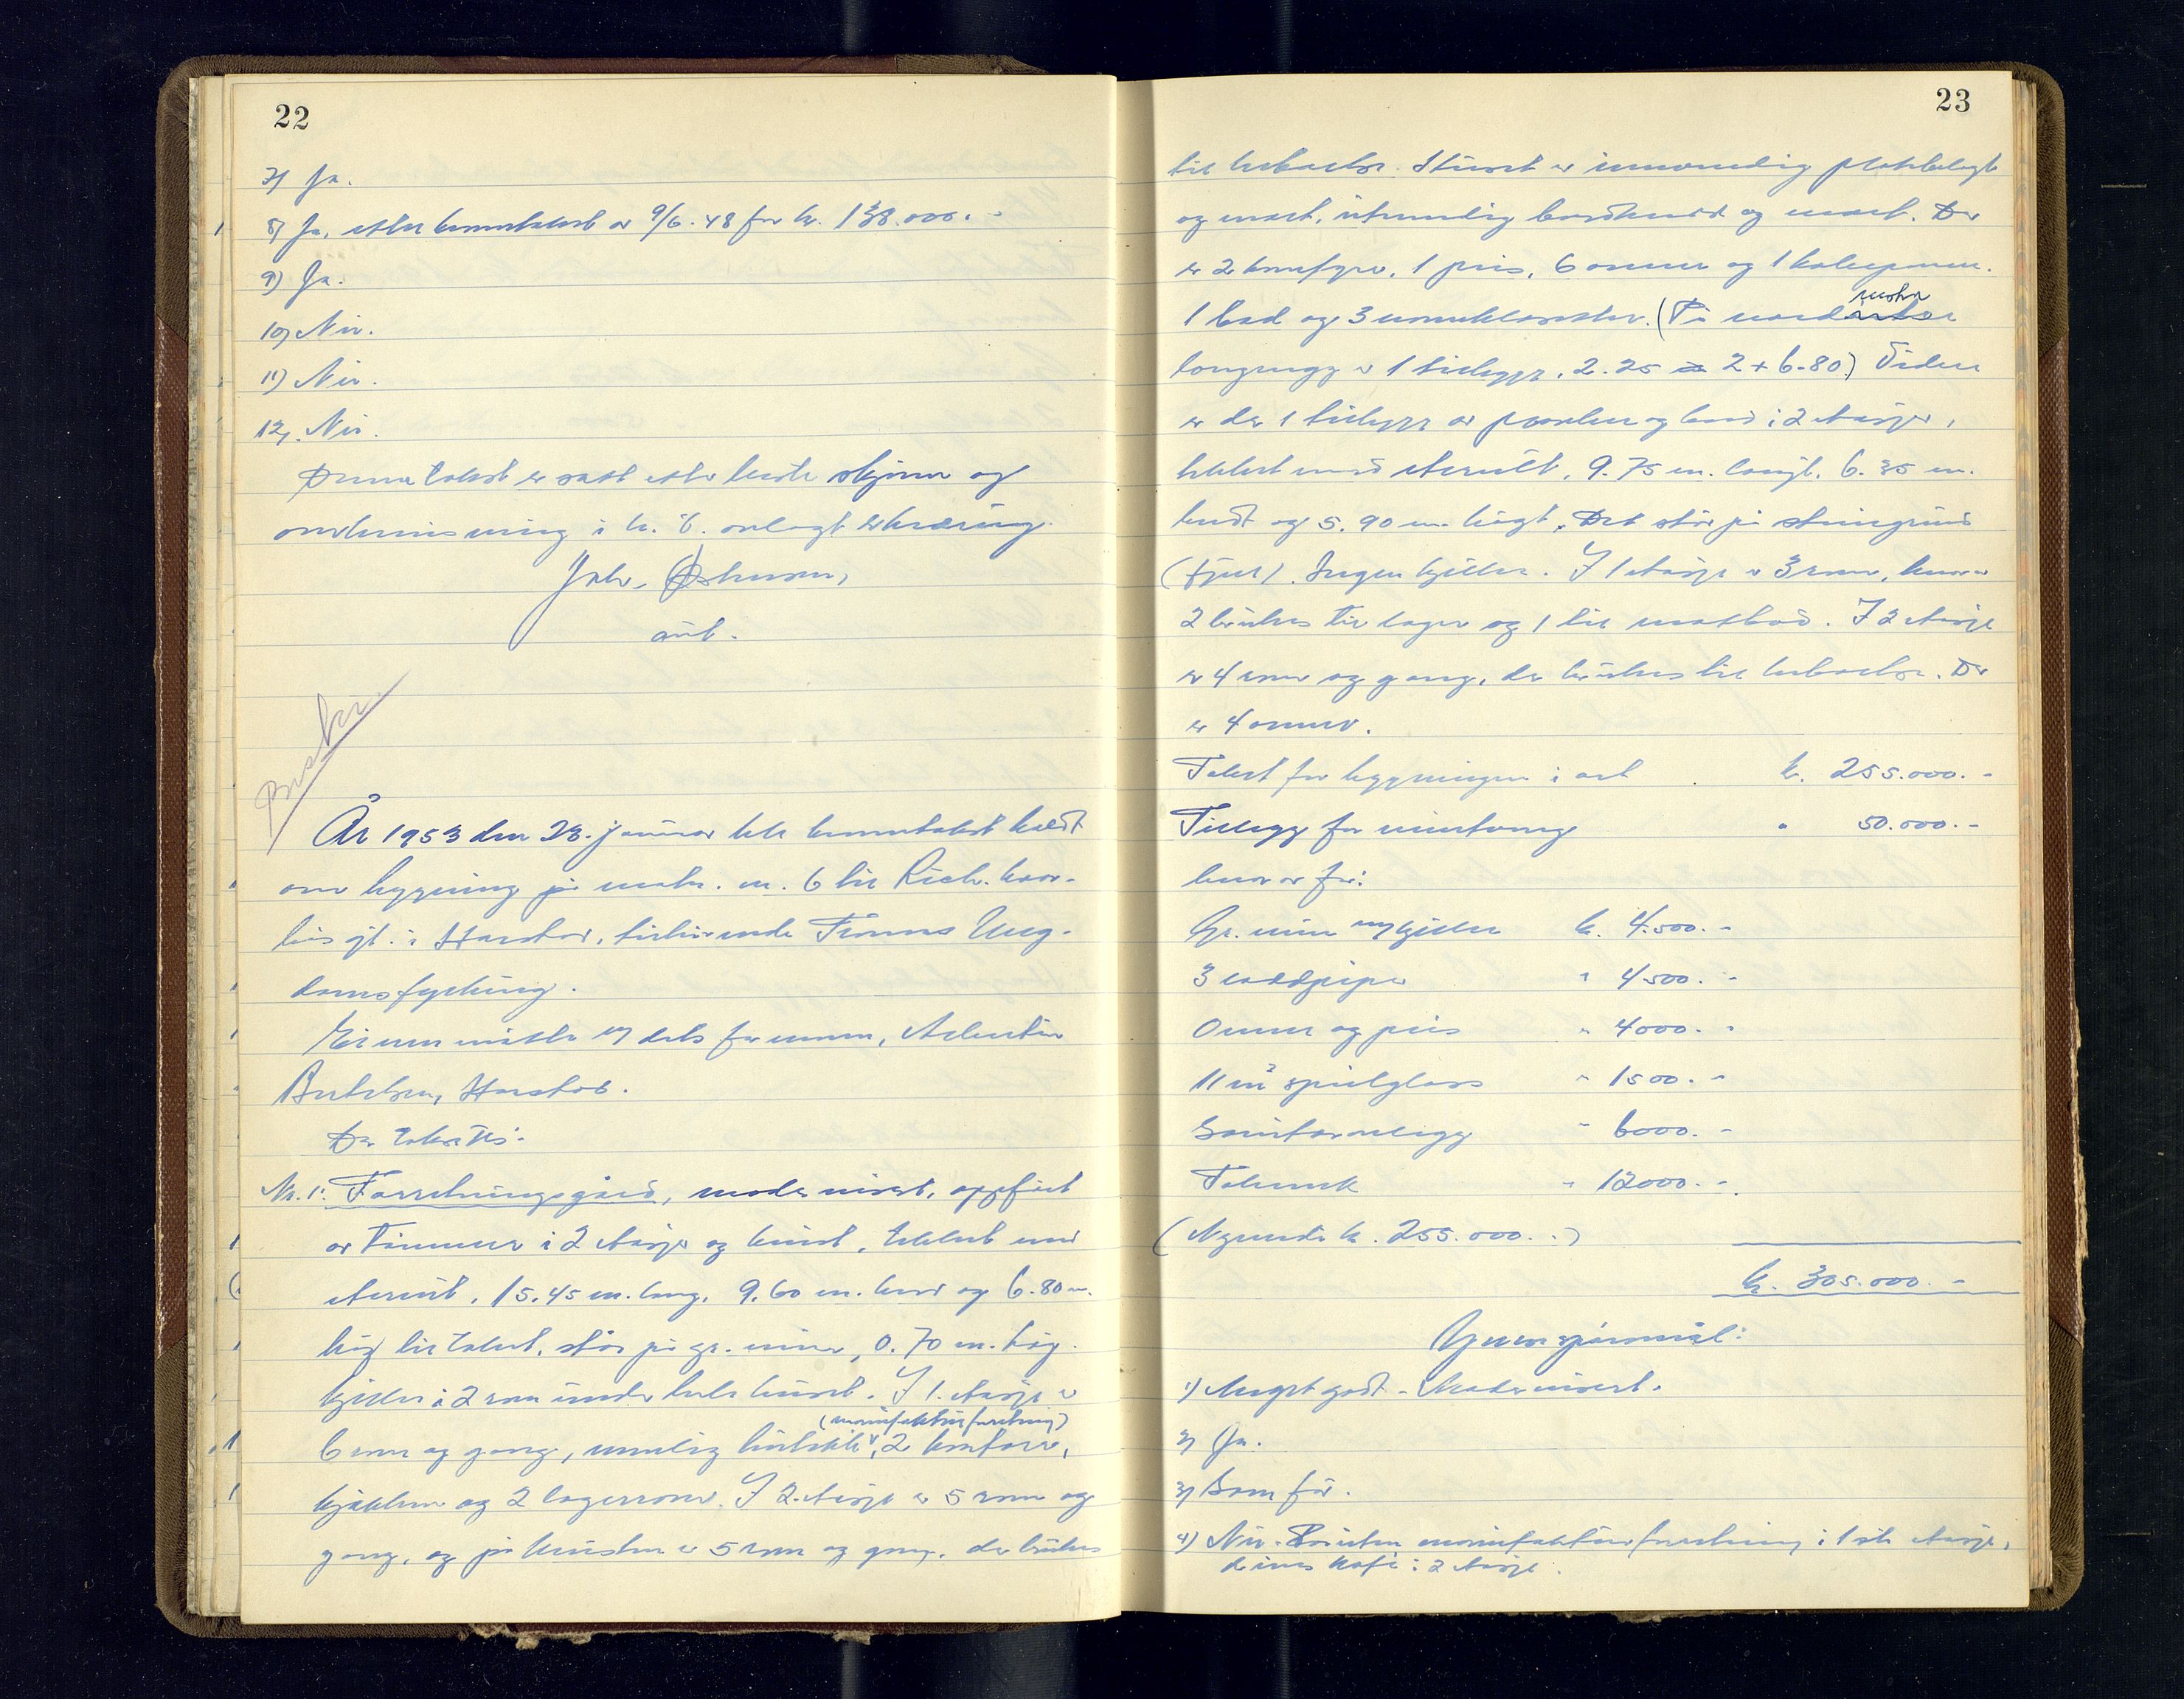 22
7) Ja.
8) Ja, etter branntakst av 9/6.48 for kr. 138.000.-
9) Ja.
10) Nei.
11) Nei.
12) Nei.
Denne takst er satt etter beste skjønn og
overbevisning i h. t. avlagt erklæring.
Joh. Østensen,
aut.
År 1953 den 23. januar ble branntakst holdt
over bygning på matr. nr. 6 til Rich.
gt. i Harstad, tilhørende Troms Ung-
domsfylking.
Eieren møtte ved dets formann,
Harstad.
De taksttes:
Nr. 1: Forretningsgård, modernisert, oppført
av tømmer i 2 etasjer og kvist, tekket med
eternit, 15.45 m. lang, 9.60 m. bred og 6.80 m.
høg til taket, står på gr. mur, 0.70 m. høg.
Kjeller i 2 rom under hele huset. I 1. etasje er
(manufakturforretning)
6 rom og gang, nemlig butikk, 2 kontorer,
kjøkken og 2 lagerrom. I 2. etasje er 5 rom og
gang, og på kvisten er 5 rom og gang, der brukes
23
til beboelse. Huset er innvendig platebelagt
og malt, utvendig bordkledd og malt. Der
er 2 komfyrer, 1 peis, 6 ovner og 1 kokeovn.
1 bad og 3 vannklosetter. (På nordøstre
vestre
langvegg er 1 tilbygg, 2.25 x 2 + 6.80) Videre
er der 1 tilbygg av planker og bord i 2 etasjer,
tekket med eternitt, 9.75 m. langt, 6.35 m.
bredt og 5.90 m. høgt. Det står på steingrund
(fjell). Ingen kjeller. I 1 etasje er 3 rom, hvorav
2 brukes til lager og 1 til matbod. I 2 etasje
er 4 rom og gang, der brukes til beboelse. Der
er 4 ovner.
Takst for bygningen i alt kr. 255.000.-
Tillegg for " 50.000.-
hvorav for:
Gr. mur og kjeller kr. 4.500.-
3 " 4500.-
Ovner og peis " 4000.-
11 m² speilglass " 1500.-
Sanitæranlegg " 6000.-
Takverk " 12000.-
( kr. 255.000.-)
kr. 305.000.-
1) Meget godt - Modernisert.
2) Ja.
3) Som før.
4) Nei. manufakturforretning i 1ste etasje,
drives kafé i 2 etasje.